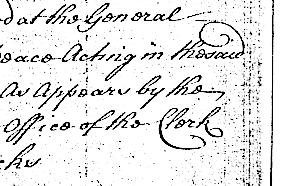 ed at the General
peace Acting in the said
As Appears by the
Office of the Clerk